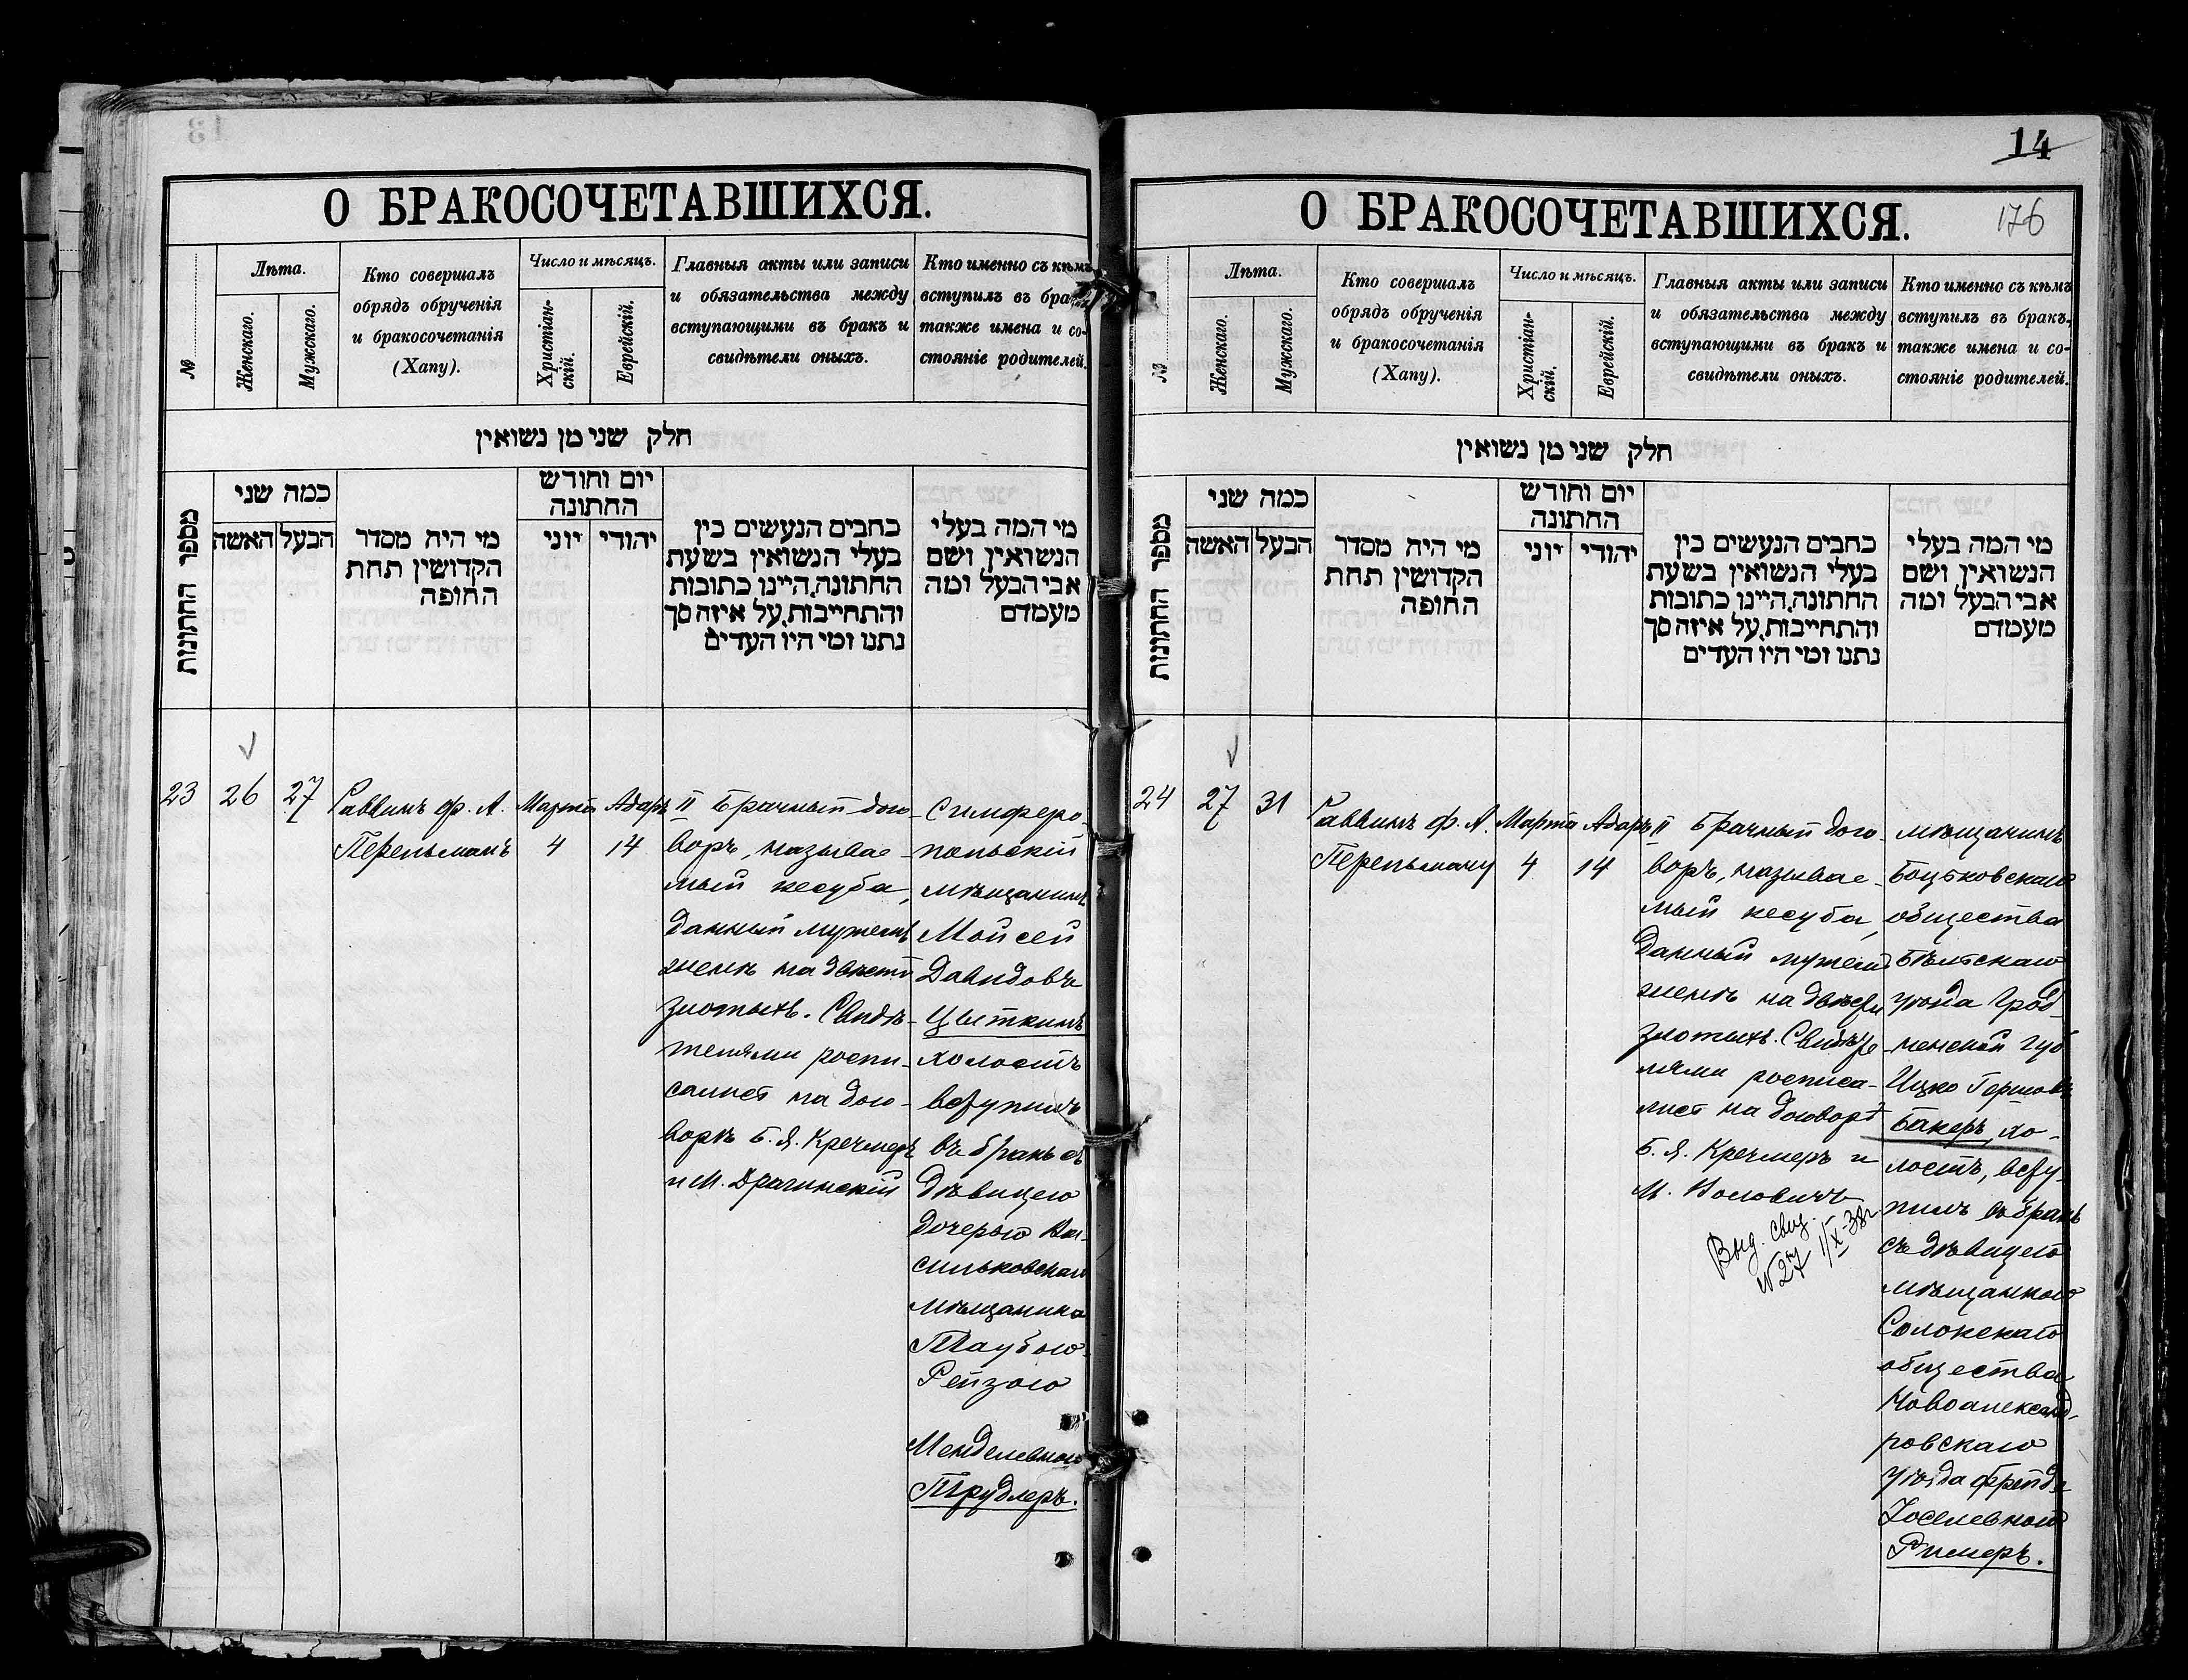 О БРАКОСОЧЕТАВШИХСЯ.
№
Лѣта.
Женскаго.
Мужскаго.
Кто совершалъ
обрядъ обрученія
и бракосочетанія
(Хапу).
Число и мѣсяцъ.
Христіан-
скій.
Еврейскій.
Главныя акты или записи
и обязательства между
вступающими въ бракъ и
свидѣтели оныхъ.
Кто именно съ кѣмъ
вступилъ въ бра
также имена и со-
стояніе родителей.
חלק שני מן נשואין
מספר החתונות
כמה שני
האשה
הבעל
מי היה מסדר
הקדושין תחת
החופה
יום וחודש
החתונה
יוני
יהודי
כתבים הנעשים בין
בעלי הנשואין בשעת
החתונה, היינו כתובות
והתחייבות, על איזה סך
נתנו ומי היו העדים
מי המה בעלי
הנשואין, ושם
אבי הבעל ומה
מעמדם
23
26
27
Раввинъ ф. А.
Перельманъ
Марта
4
Адаръ II
14
Брачный дого-
воръ, называе-
мый кесуба,
данный мужемъ
женѣ на двѣсти
злотыхъ. Свидѣ-
телями роспи-
сались на дого-
ворѣ Б. Я. Кречмеръ
и М. Драгинскій
Симферо-
польскій
мѣщанинъ
Мойсей
Давидовъ
Цыткинъ
холостъ
вступилъ
въ бракъ съ
дѣвицею
дочерью Ва-
сильковскаго
мѣщанина
Таубою-
Рейзою
Менделевною
Трудлеръ.
14
176
О БРАКОСОЧЕТАВШИХСЯ.
№
Лѣта.
Женскаго.
Мужскаго.
Кто совершалъ
обрядъ обрученія
и бракосочетанія
(Хапу).
Число и мѣсяцъ.
Христіан-
скій.
Еврейскій.
Главныя акты или записи
и обязательства между
вступающими въ бракъ и
свидѣтели оныхъ.
Кто именно съ кѣмъ
вступилъ въ бракъ,
также имена и со-
стояніе родителей.
חלק שני מן נשואין
מספר החתונות
כמה שני
האשה
הבעל
מי היה מסדר
הקדושין תחת
החופה
יום וחודש
החתונה
יוני
יהודי
כתבים הנעשים בין
בעלי הנשואין בשעת
החתונה, היינו כתובות
והתחייבות, על איזה סך
נתנו ומי היו העדים
מי המה בעלי
הנשואין, ושם
אבי הבעל ומה
מעמדם
24
27
31
Раввинъ ф. А.
Перельманъ
Марта
4
Адаръ II
14
Брачный дого-
воръ, называе-
мый кесуба,
данный мужемъ
женѣ на двѣсти
злотыхъ. Свидѣте-
лями росписа-
лись на договорѣ
Б. Я. Кречмеръ и
М. Воловичъ
Выд. свид.
№ 27 1/X-38г.
мѣщанинъ
Боцьковскаго
общества
Бѣльскаго
уѣзда Грод-
ненской губ
Ицко Гершовъ
Бакеръ, хо-
лостъ, всту-
пилъ въ бракъ
съ дѣвицею
мѣщанкою
Солокскаго
общества
Новоалександ-
ровскаго
уѣзда Фрейд
Іоселевною
Ригеръ.